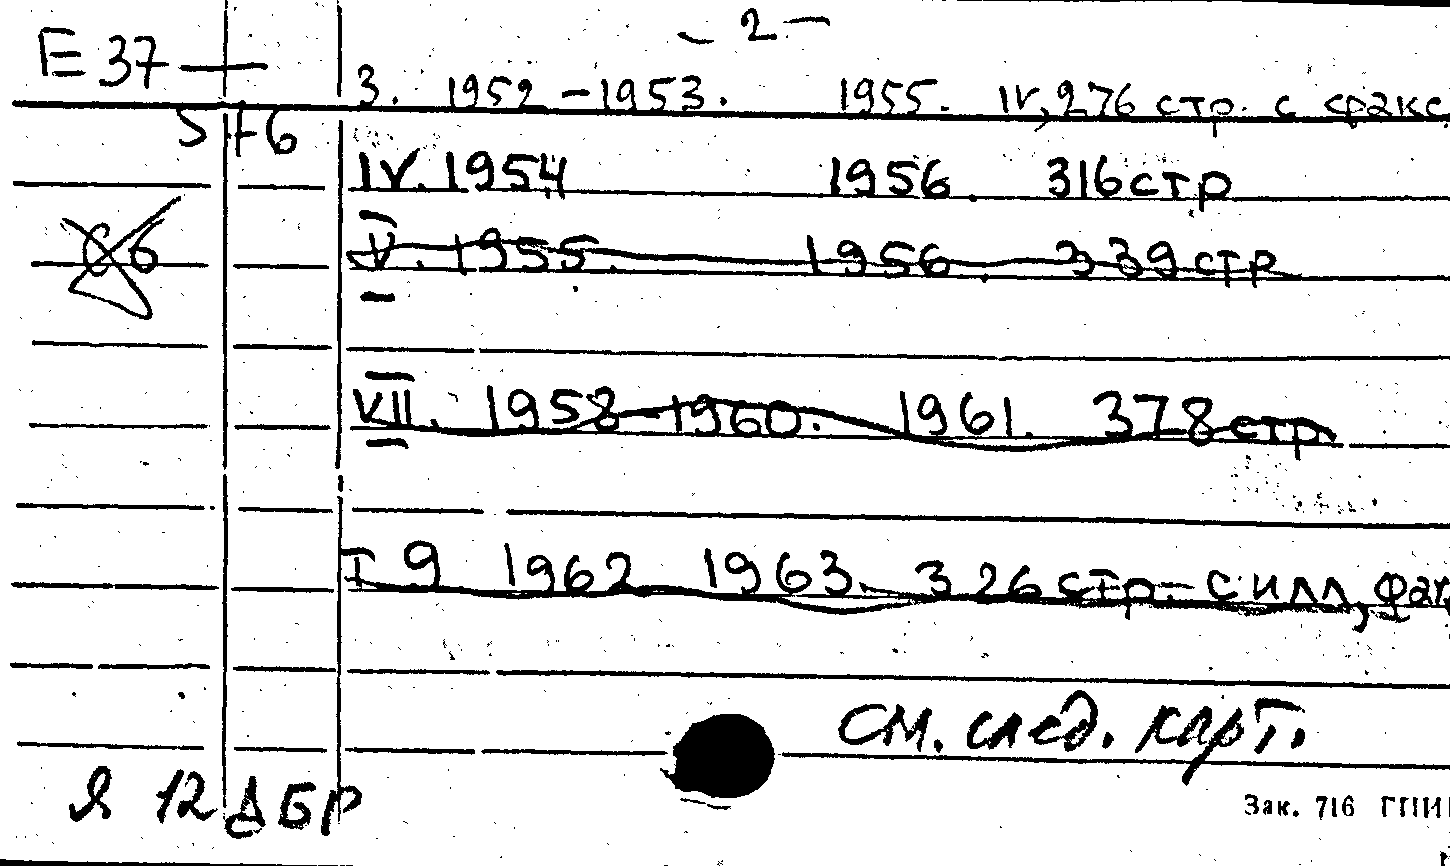 – 2 –
Е 37 —
3. 1952 – 1953. 1955. IV, 276 стр. с факс.
5+6
IV. 1954 1956. 316 стр
V. 1955. 1956. 339 стр
66
VII. 1958 – 1960. 1961. 378 стр
Т 9 1962 1963. 326 стр – с илл, фак
см. след. карт.
Я 12 ДБР
Зак. 716 ГПИ